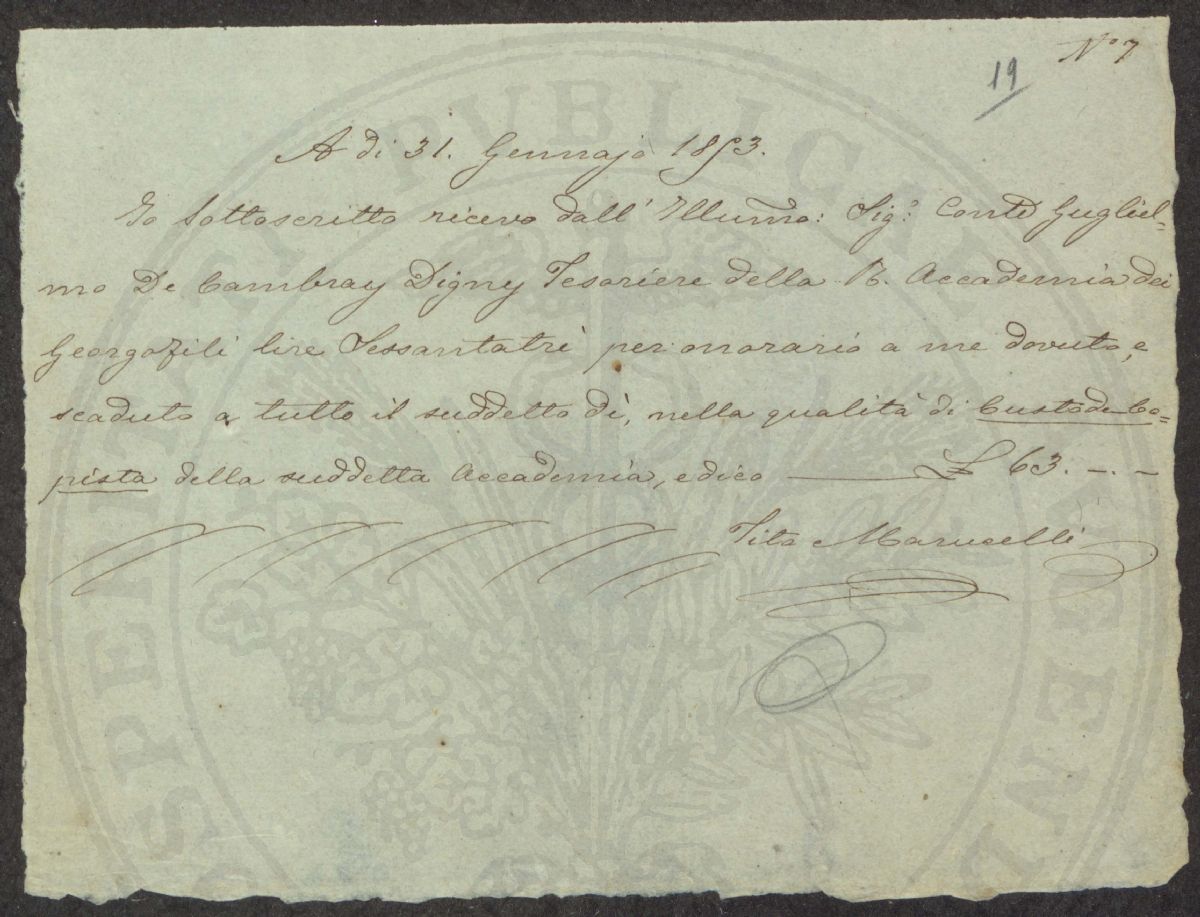 N.o 7
19
A dì 31. Gennajo 1853.
Io Sottoscritto ricevo dall' Illumo: Sig.e Conte Gugliel=
mo De Cambray Digny Tesoriere della R. Accademia dei
Georgofili lire Sessantatrè per onorario a me dovuto, e
scaduto a tutto il suddetto dì, nella qualità di Custode Co=
pista della suddetta Accademia, e dico — £ 63. -. -
Tito Marucelli
PROSPERITATI PVBLICAE AVGENDAE